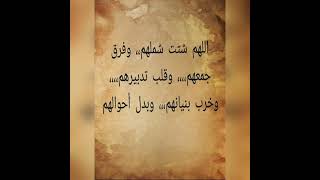 اللهم شتت شملهم،، وفرق
جمعهم،،،، وقلب تدبيرهم،،،،
وخرب بنيانهم،،، وبدل أحوالهم